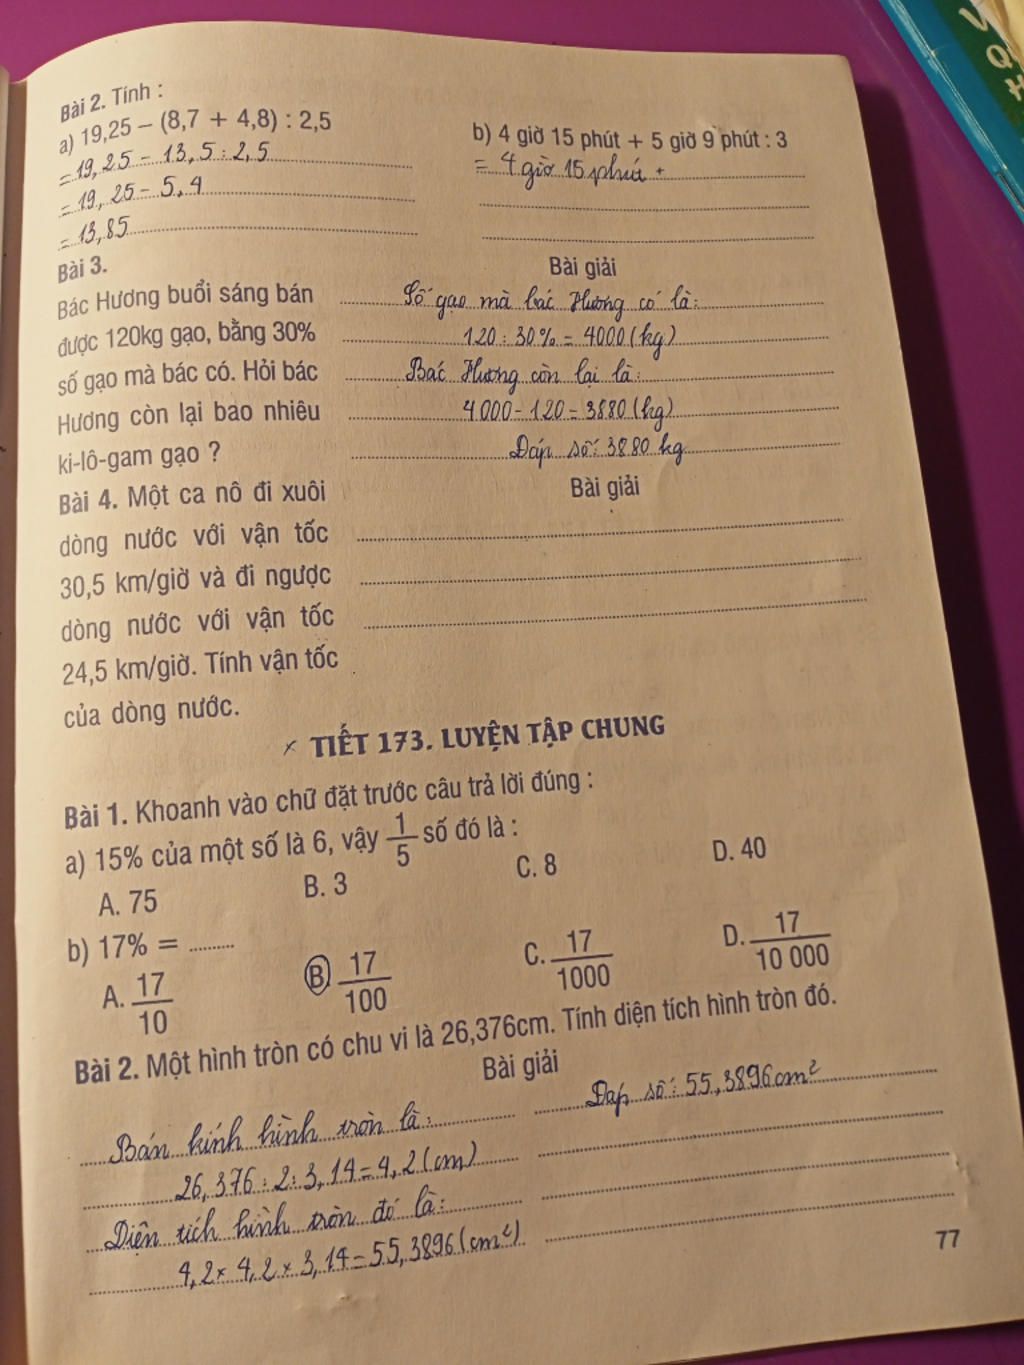 Bài 2. Tính :
a) 19,25 – (8,7 + 4,8) : 2,5
= 19,25 - 13,5 : 2,5
= 19,25 - 5,4
= 13,85
b) 4 giờ 15 phút + 5 giờ 9 phút : 3
= 4 giờ 15 phút +
Bài 3.
Bác Hương buổi sáng bán
được 120kg gạo, bằng 30%
số gạo mà bác có. Hỏi bác
Hương còn lại bao nhiêu
ki-lô-gam gạo ?
Bài giải
Số gạo mà bác Hương có là:
120 : 30% = 4000 (kg)
Bác Hương còn lại là:
4000 - 120 = 3880 (kg)
Đáp số: 3880 kg
Bài 4. Một ca nô đi xuôi
dòng nước với vận tốc
30,5 km/giờ và đi ngược
dòng nước với vận tốc
24,5 km/giờ. Tính vận tốc
của dòng nước.
Bài giải
x TIẾT 173. LUYỆN TẬP CHUNG
Bài 1. Khoanh vào chữ đặt trước câu trả lời đúng :
a) 15% của một số là 6, vậy 1/5 số đó là :
A. 75 B. 3 C. 8 D. 40
b) 17% = .........
A. 17/10 B. 17/100 C. 17/1000 D. 17/10 000
Bài 2. Một hình tròn có chu vi là 26,376cm. Tính diện tích hình tròn đó.
Bài giải
Bán kính hình tròn là:
26,376 : 2 : 3,14 = 4,2 (cm)
Diện tích hình tròn đó là:
4,2 x 4,2 x 3,14 = 55,3896 (cm²)
Đáp số: 55,3896 cm²
77